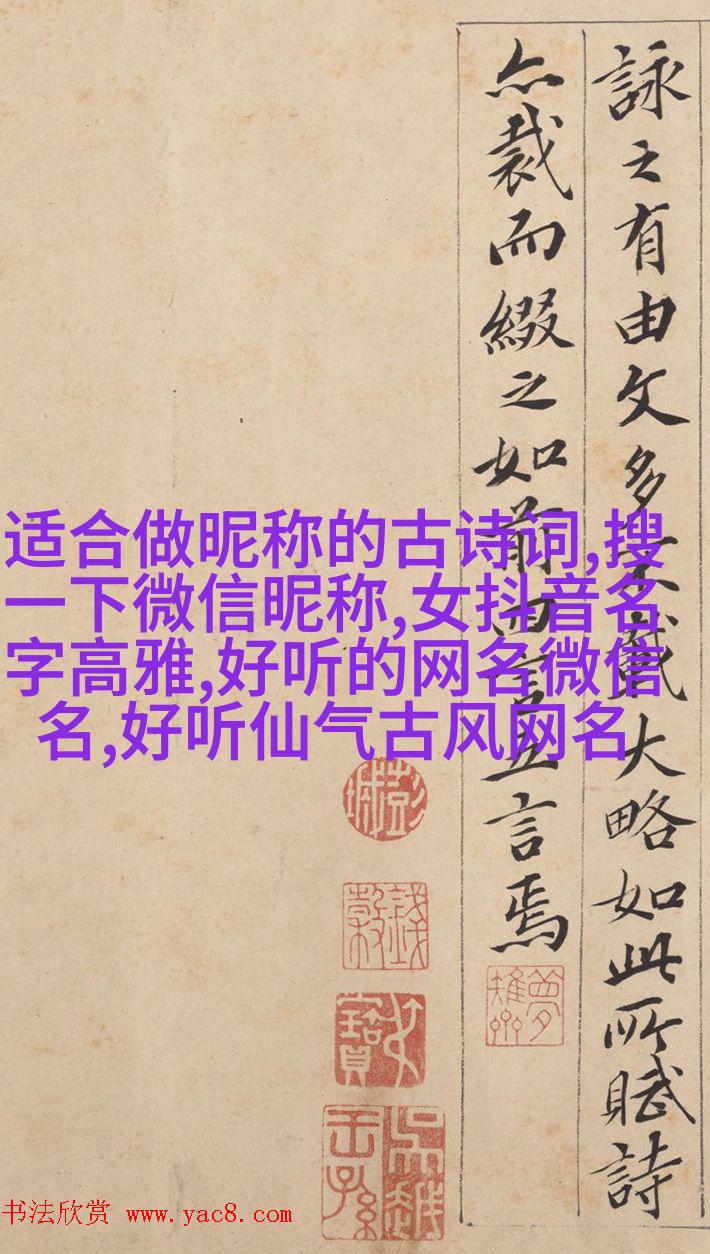 詠之有由文多不載大略如此所賦詩
亦裁而綴之如前四言五言焉
适合做昵称的古诗词,搜
一下微信昵称,女抖音名
字高雅,好听的网名微信
名,好听仙气古风网名
书法欣赏 www.yac8.com